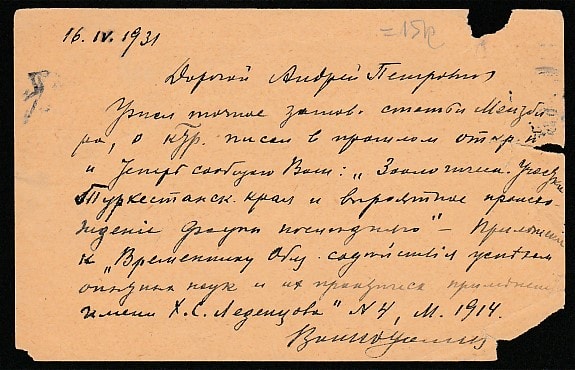 16. IV. 1931
=15к
Дорогой Андрей Петрович
Узнал точное заглав. статьи Мензби
ра, о кот. писал в прошлом откр.
и теперь сообщаю Вам: „Зоологическ. Участки
Туркестанск. края и вероятное проис-
хождение фауны последнего" – Приложение
к „Временнику Общ. содействия успехам
опытных наук и их практическ. применен.
имени Х. С. Леденцова" N 4, М. 1914.